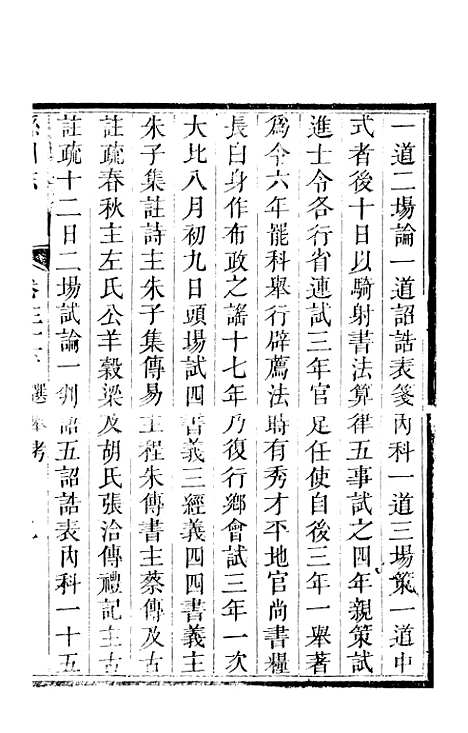 一道二場論一道詔誥表箋內科一道三場策一道中
式者後十日以騎射書法算律五事試之四年親策試
進士令各行省連試三年官足任使自後三年一舉著
爲令六年罷科舉行辟薦法時有秀才平地官尚書糧
長白身作布政之謠十七年乃復行鄉會試三年一次
大比八月初九日頭場試四書義三經義四四書義主
朱子集註詩主朱子集傳易主程朱傳書主蔡傳及古
註疏春秋主左氏公羊穀梁及胡氏張洽傳禮記主古
註疏十二日二場試論一判語五詔誥表內科一十五
選舉考